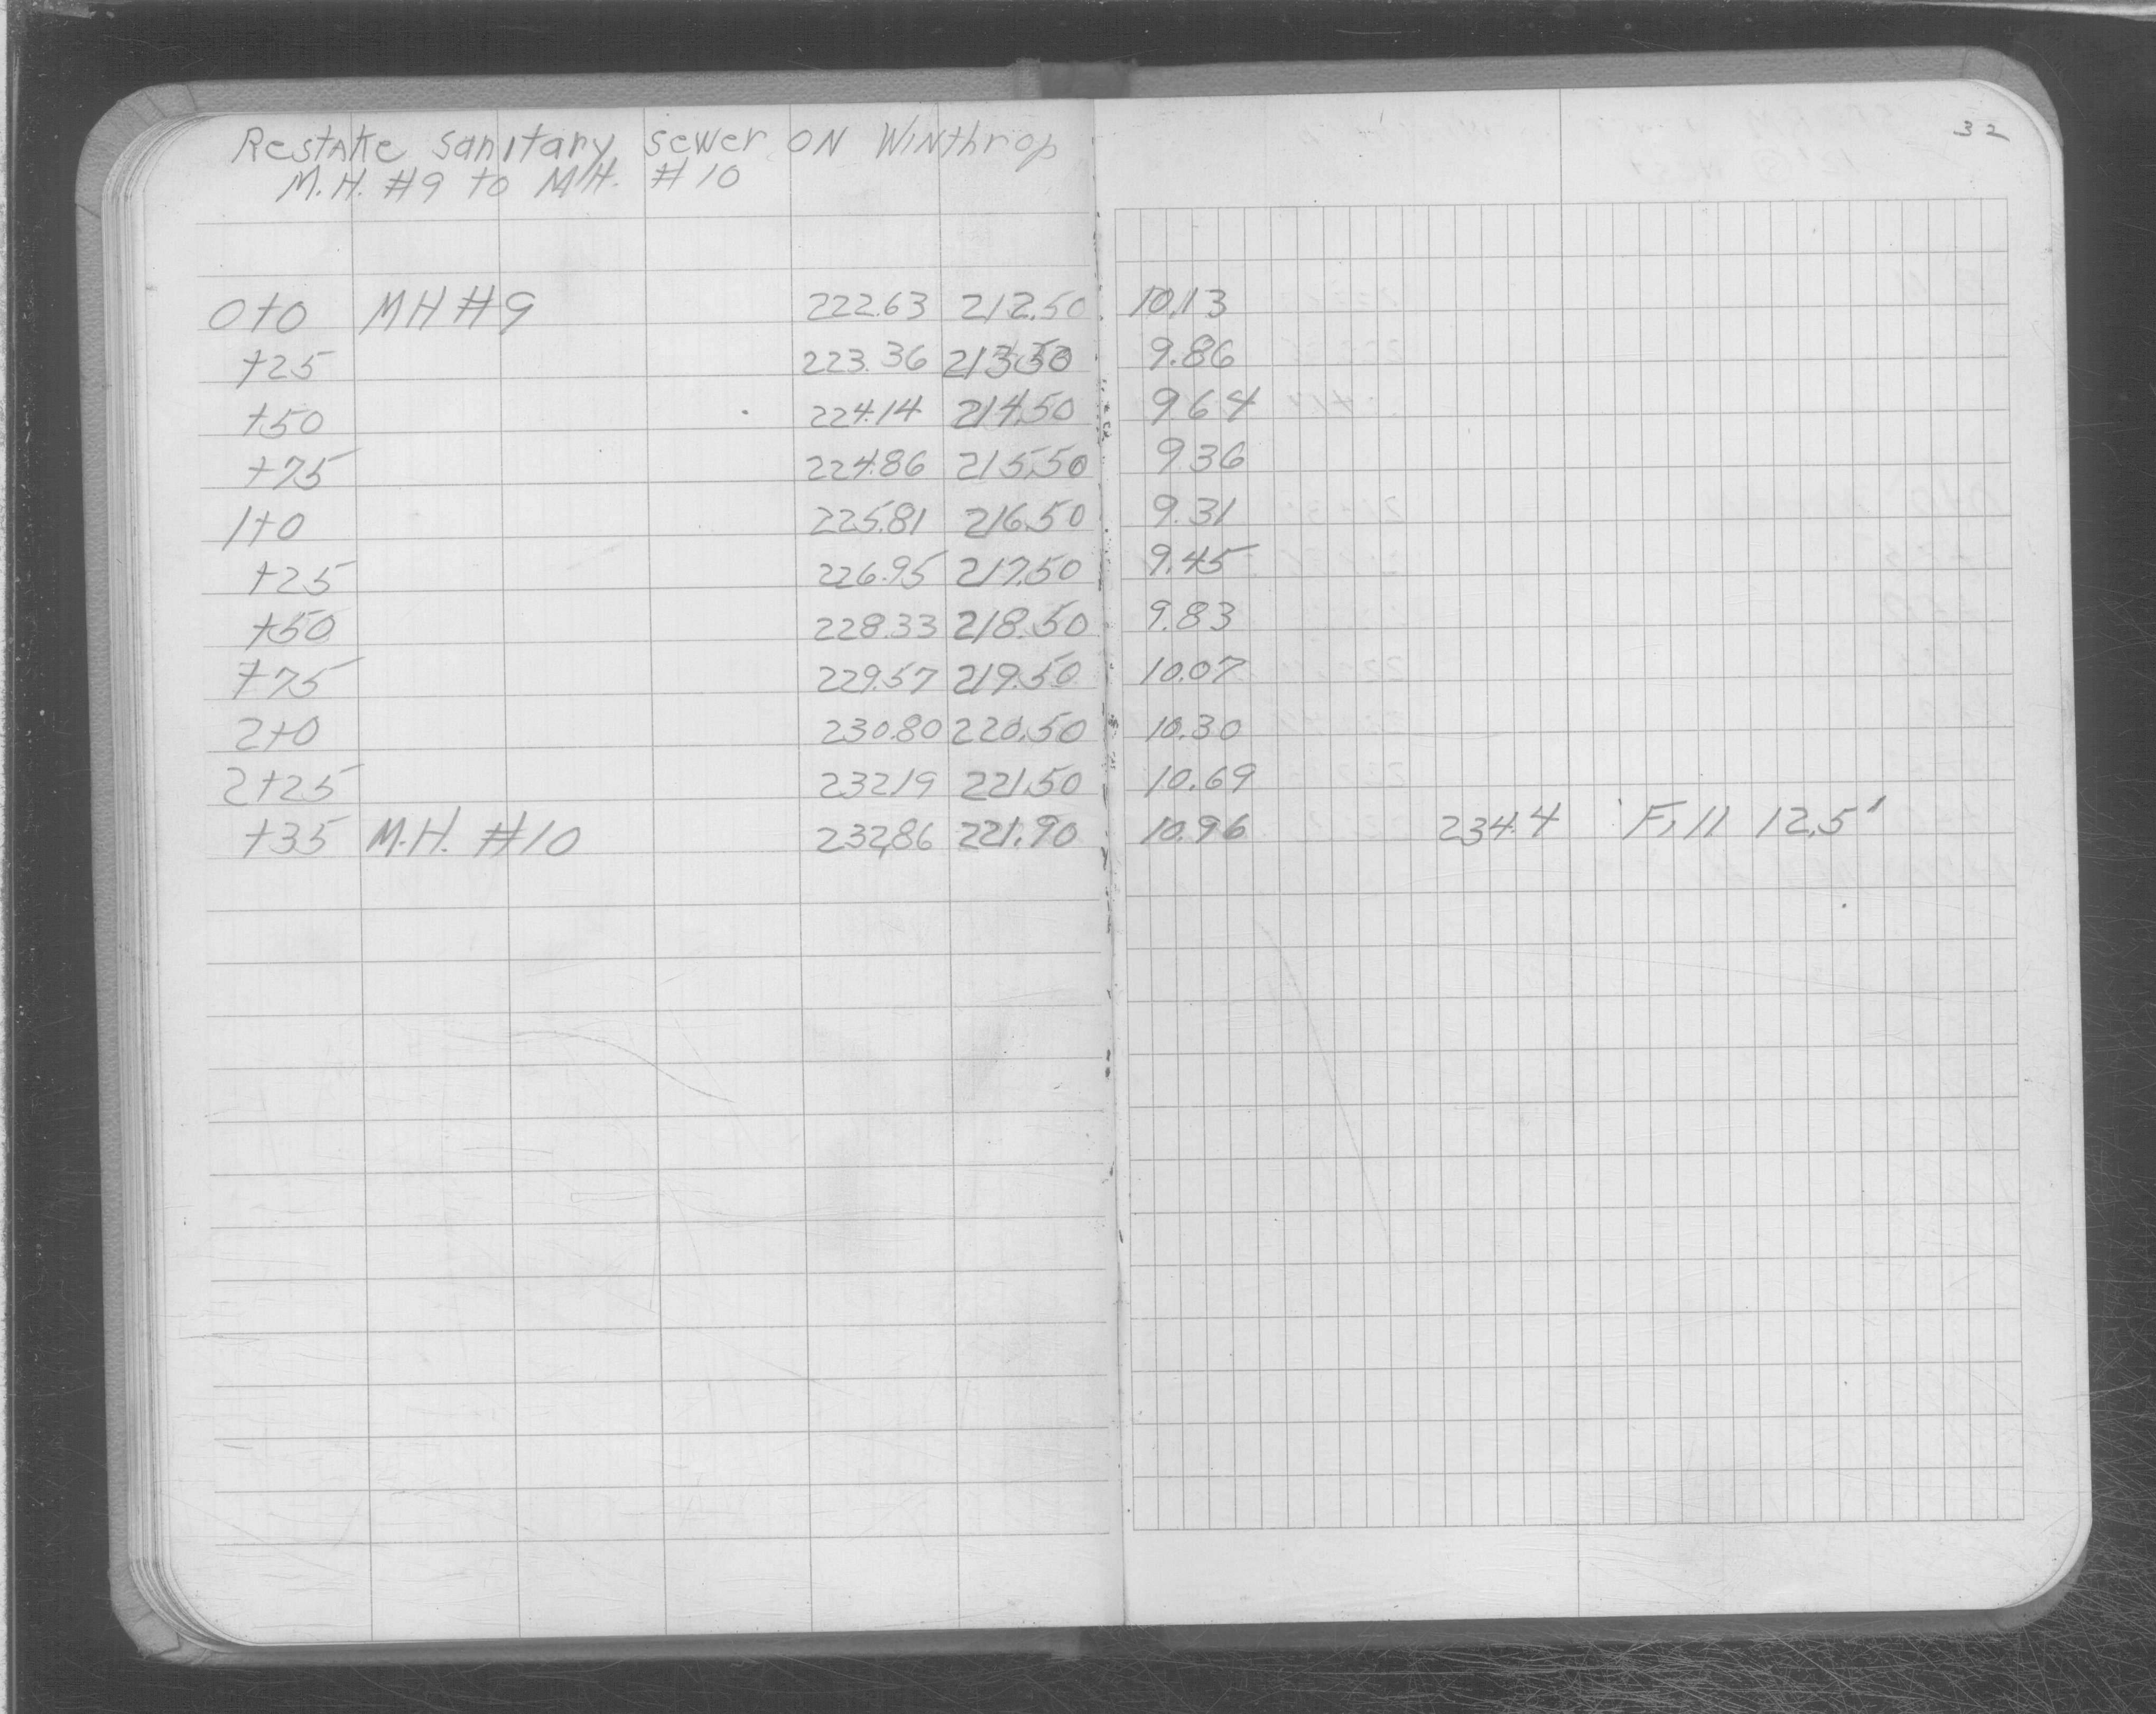 Restake sanitary sewer ON Winthrop
M.H. #9 to M.H. #10
32
0+0 MH #9 222.63 212.50 10.13
+25 223.36 213.50 9.86
+50 224.14 214.50 9.64
+75 224.86 215.50 9.36
1+0 225.81 216.50 9.31
+25 226.95 217.50 9.45
+50 228.33 218.50 9.83
+75 229.57 219.50 10.07
2+0 230.80 220.50 10.30
2+25 232.19 221.50 10.69
+35 M.H. #10 232.86 221.90 10.96 234.4 Fill 12.5'